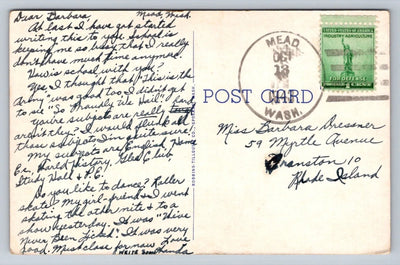 Dear Barbara Mead, Wash.
At last I have got started
writing this to you. School is
keeping me so busy that I really
don't have much time anymore.
How is school with you?
Yes, I thought that "This is the
Army" was good too. I didn't get
to see "So Proudly We Hail".
your subjects are really hard
aren't they? I would flunk all
those subjects I'm quite sure.
My subjects are English, Home
Ec, World History, Glee Club
Study Hall & P.E.
Do you like to dance? Roller
skate? My girl-friend & I went
skating the other nite & to a
show yesterday. It was "We've
Never Been Licked". It was very
good. Must close for now. Love
WRITE SOON Wanda
MEAD
OCT
13
WASH.
UNITED STATES OF AMERICA
INDUSTRY AGRICULTURE
FOR DEFENSE
POST CARD
Miss Barbara Bressner
59 Myrtle Avenue
Cranston 10
Rhode Island